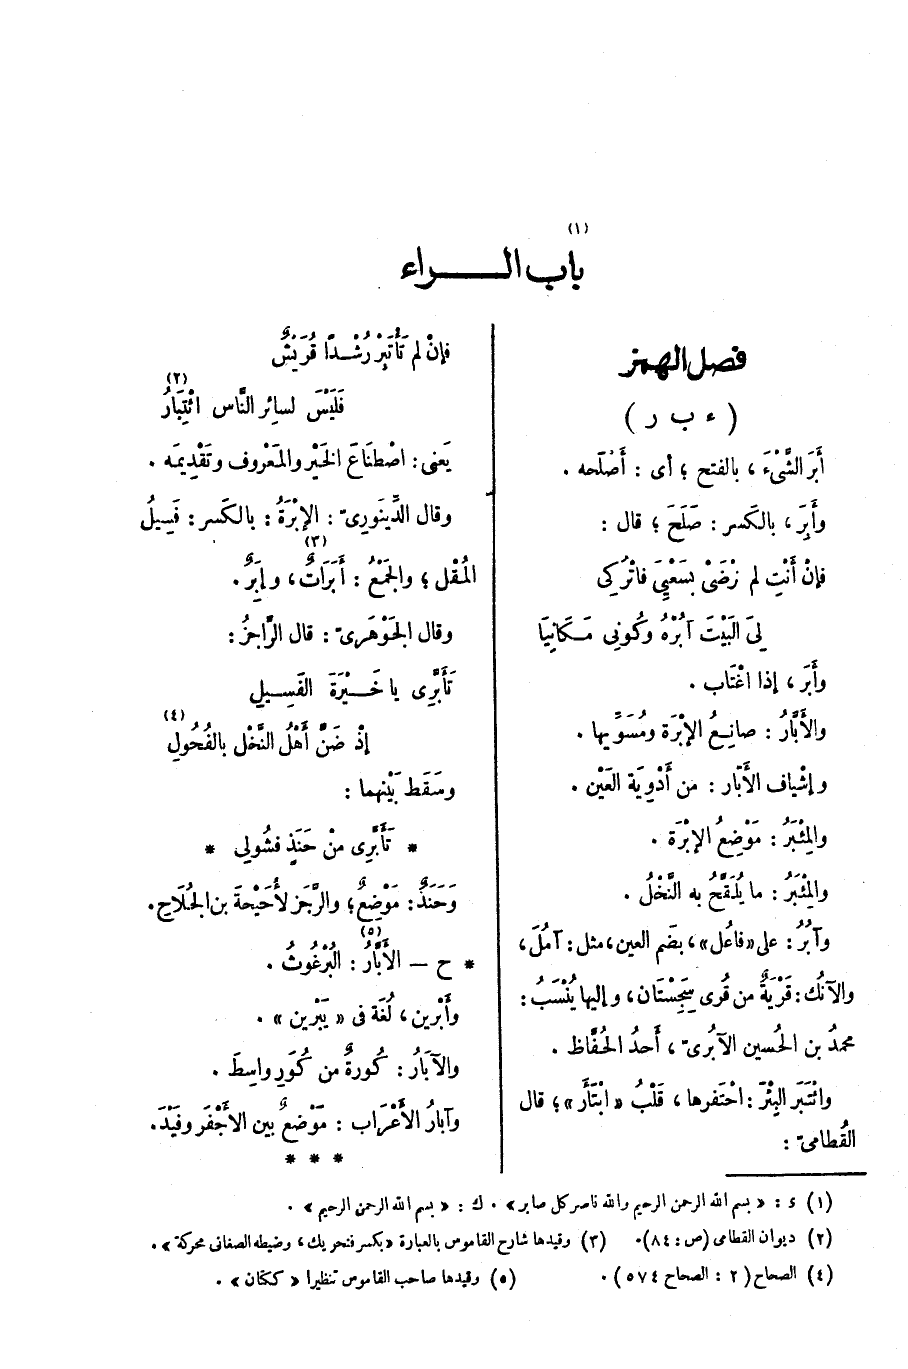 (١)
باب الـــراء
فصل الهمز
( ء ب ر )
أَبَرَ الشَّىْءَ ، بالفتح ؛ أى : أَصْلَحه .
وأَبِرَ ، بالكَسر : صَلَحَ ؛ قال :
فإنْ أَنْتِ لم تَرْضَىْ بسَعْيِىَ فاتْرُكِى
لِىَ البَيْتَ آبُرْهُ وكُونِى مَـكَانِيَا
وأَبَر ، إذا اغْتَاب .
والأَبَّارُ : صانِعُ الإبْرَة ومُسَوِّيها .
وإشْياف الأَبّار : من أَدْوِيَة العَيْن .
والمِئْبَرُ : مَوْضِعُ الإبْرَة .
والمِئْبَرُ : ما يُلَقَّحُ به النَّخْلُ .
وآبُرُ : على «فاعُل» ، بضَم العين ، مثل : آمُلَ ،
والآنُك : قَرْيَةٌ من قُرى سِجِسْتَان ، وإليها يُنْسَبُ :
محمدُ بن الحُسين الآبُرىّ ، أَحدُ الحُفَّاظ .
وائْتَبَر البِئْرَ : احْتَفرها ، قَلْبُ « ابْتَأَر» ؛ قال
القُطامىّ :
فإنْ لم تَأْتَبِرْ رُشْـدًا قُرَيْشٌ
(٢)
فَلَيْسَ لسائِر النَّاس ائْتِبَارُ
يَعْنى : اصْطِنَاعَ الخَيْر والمَعْروف وتَقْدِيمَه .
وقال الدِّينَورىّ : الإبْرَةُ : بالكَسر : فَسِيلُ
(٣)
المُقْل ؛ والجَمْعُ : أَبَرَاتٌ ، وإبَرٌ .
وقال الجَوْهَرىّ : قال الرَّاجِزُ :
تَأَبَّرِى يا خَـيْرَةَ الفَسِـيلِ
(٤)
إذْ ضَنَّ أَهْلُ النَّخْلِ بالفُحُولِ
وسَقَط بَيْنهما :
* تَأَبَّرِى مِنْ حَنَذٍ فشُولِي *
وَحَنَذٌ : مَوْضِعٌ ؛ والرَّجَز لأُحَيْحَةَ بن الجُلَاح .
(٥)
* ح — الأَبَّارُ : البُرْغُوثُ .
وأَبْرين ، لُغَة فى « يَبْرين » .
والآبَارُ : كُورَةٌ من كُوَرِ واسِطَ .
وآبارُ الأَعْراب : مَوْضعٌ بين الأَجْفَر وفَيْدَ .
* * *
(١) ء : « بسم الله الرحمن الرحيم والله ناصر كل صابر » . ك : « بسم الله الرحمن الرحيم » .
(٢) ديوان القطامى (ص : ٨٤) . (٣) وقيدها شارح القاموس بالعبارة «بكسر فتحريك ، وضبطه الصغانى محركة » .
(٤) الصحاح ( ٢ : الصحاح ٥٧٤ ) . (٥) وقيدها صاحب القاموس تنظيرا « ككتان » .